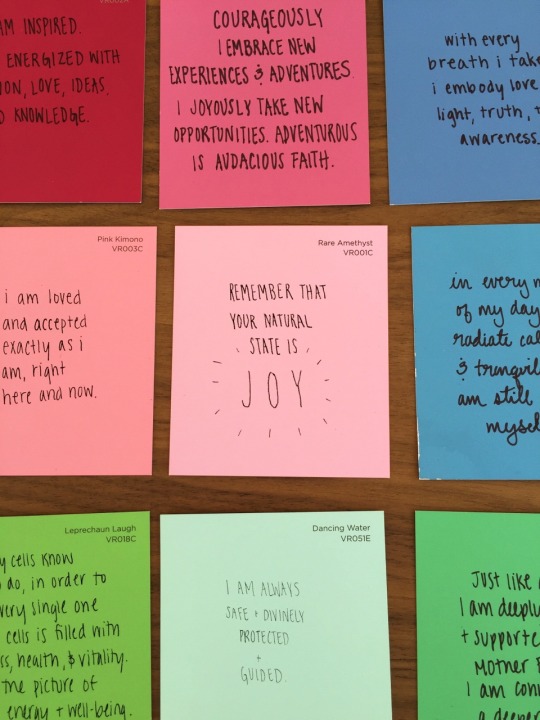 VR002A
AM INSPIRED.
ENERGIZED WITH
ION, LOVE, IDEAS,
KNOWLEDGE.
COURAGEOUSLY
I EMBRACE NEW
EXPERIENCES & ADVENTURES.
I JOYOUSLY TAKE NEW
OPPORTUNITIES. ADVENTUROUS
IS AUDACIOUS FAITH.
with every
breath i take
i embody love
light, truth,
awareness.
Pink Kimono
VR003C
i am loved
and accepted
exactly as i
am, right
here and now.
Rare Amethyst
VR001C
REMEMBER THAT
YOUR NATURAL
STATE IS
JOY
in every
of my day
radiate
&
am still
Leprechaun Laugh
VR018C
y cells know
do, in order to
very single one
cells is filled with
ss, health, & vitality.
the picture of
energy + well-being.
Dancing Water
VR051E
I AM ALWAYS
SAFE + DIVINELY
PROTECTED
+
GUIDED.
Just like
I am deeply
+ supporte
Mother
I am con
a deeper